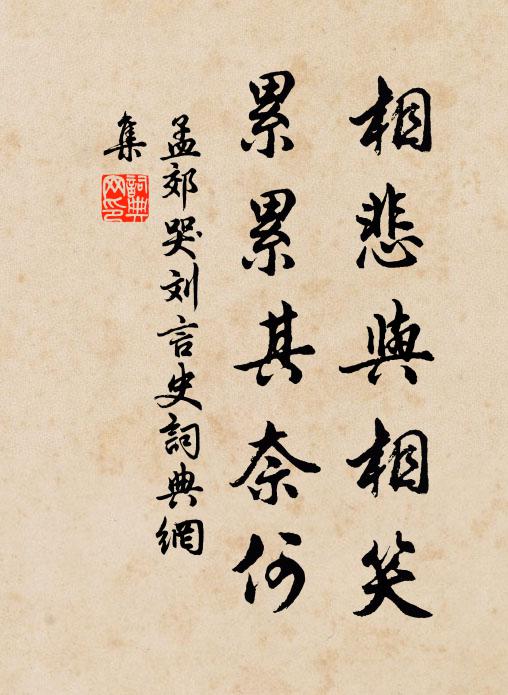 相悲與相笑
累累其奈何
孟郊哭刘言史詞典網
集
詞典
网印